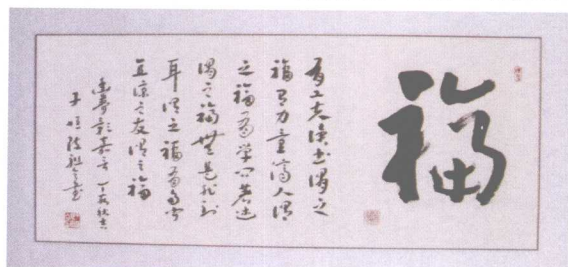 福
有工夫讀書謂之
福有力量濟人謂
之福有學問著述
謂之福無是非到
耳謂之福有多聞
直諒之友謂之福
幽夢影嘉言 丁亥秋
子恒